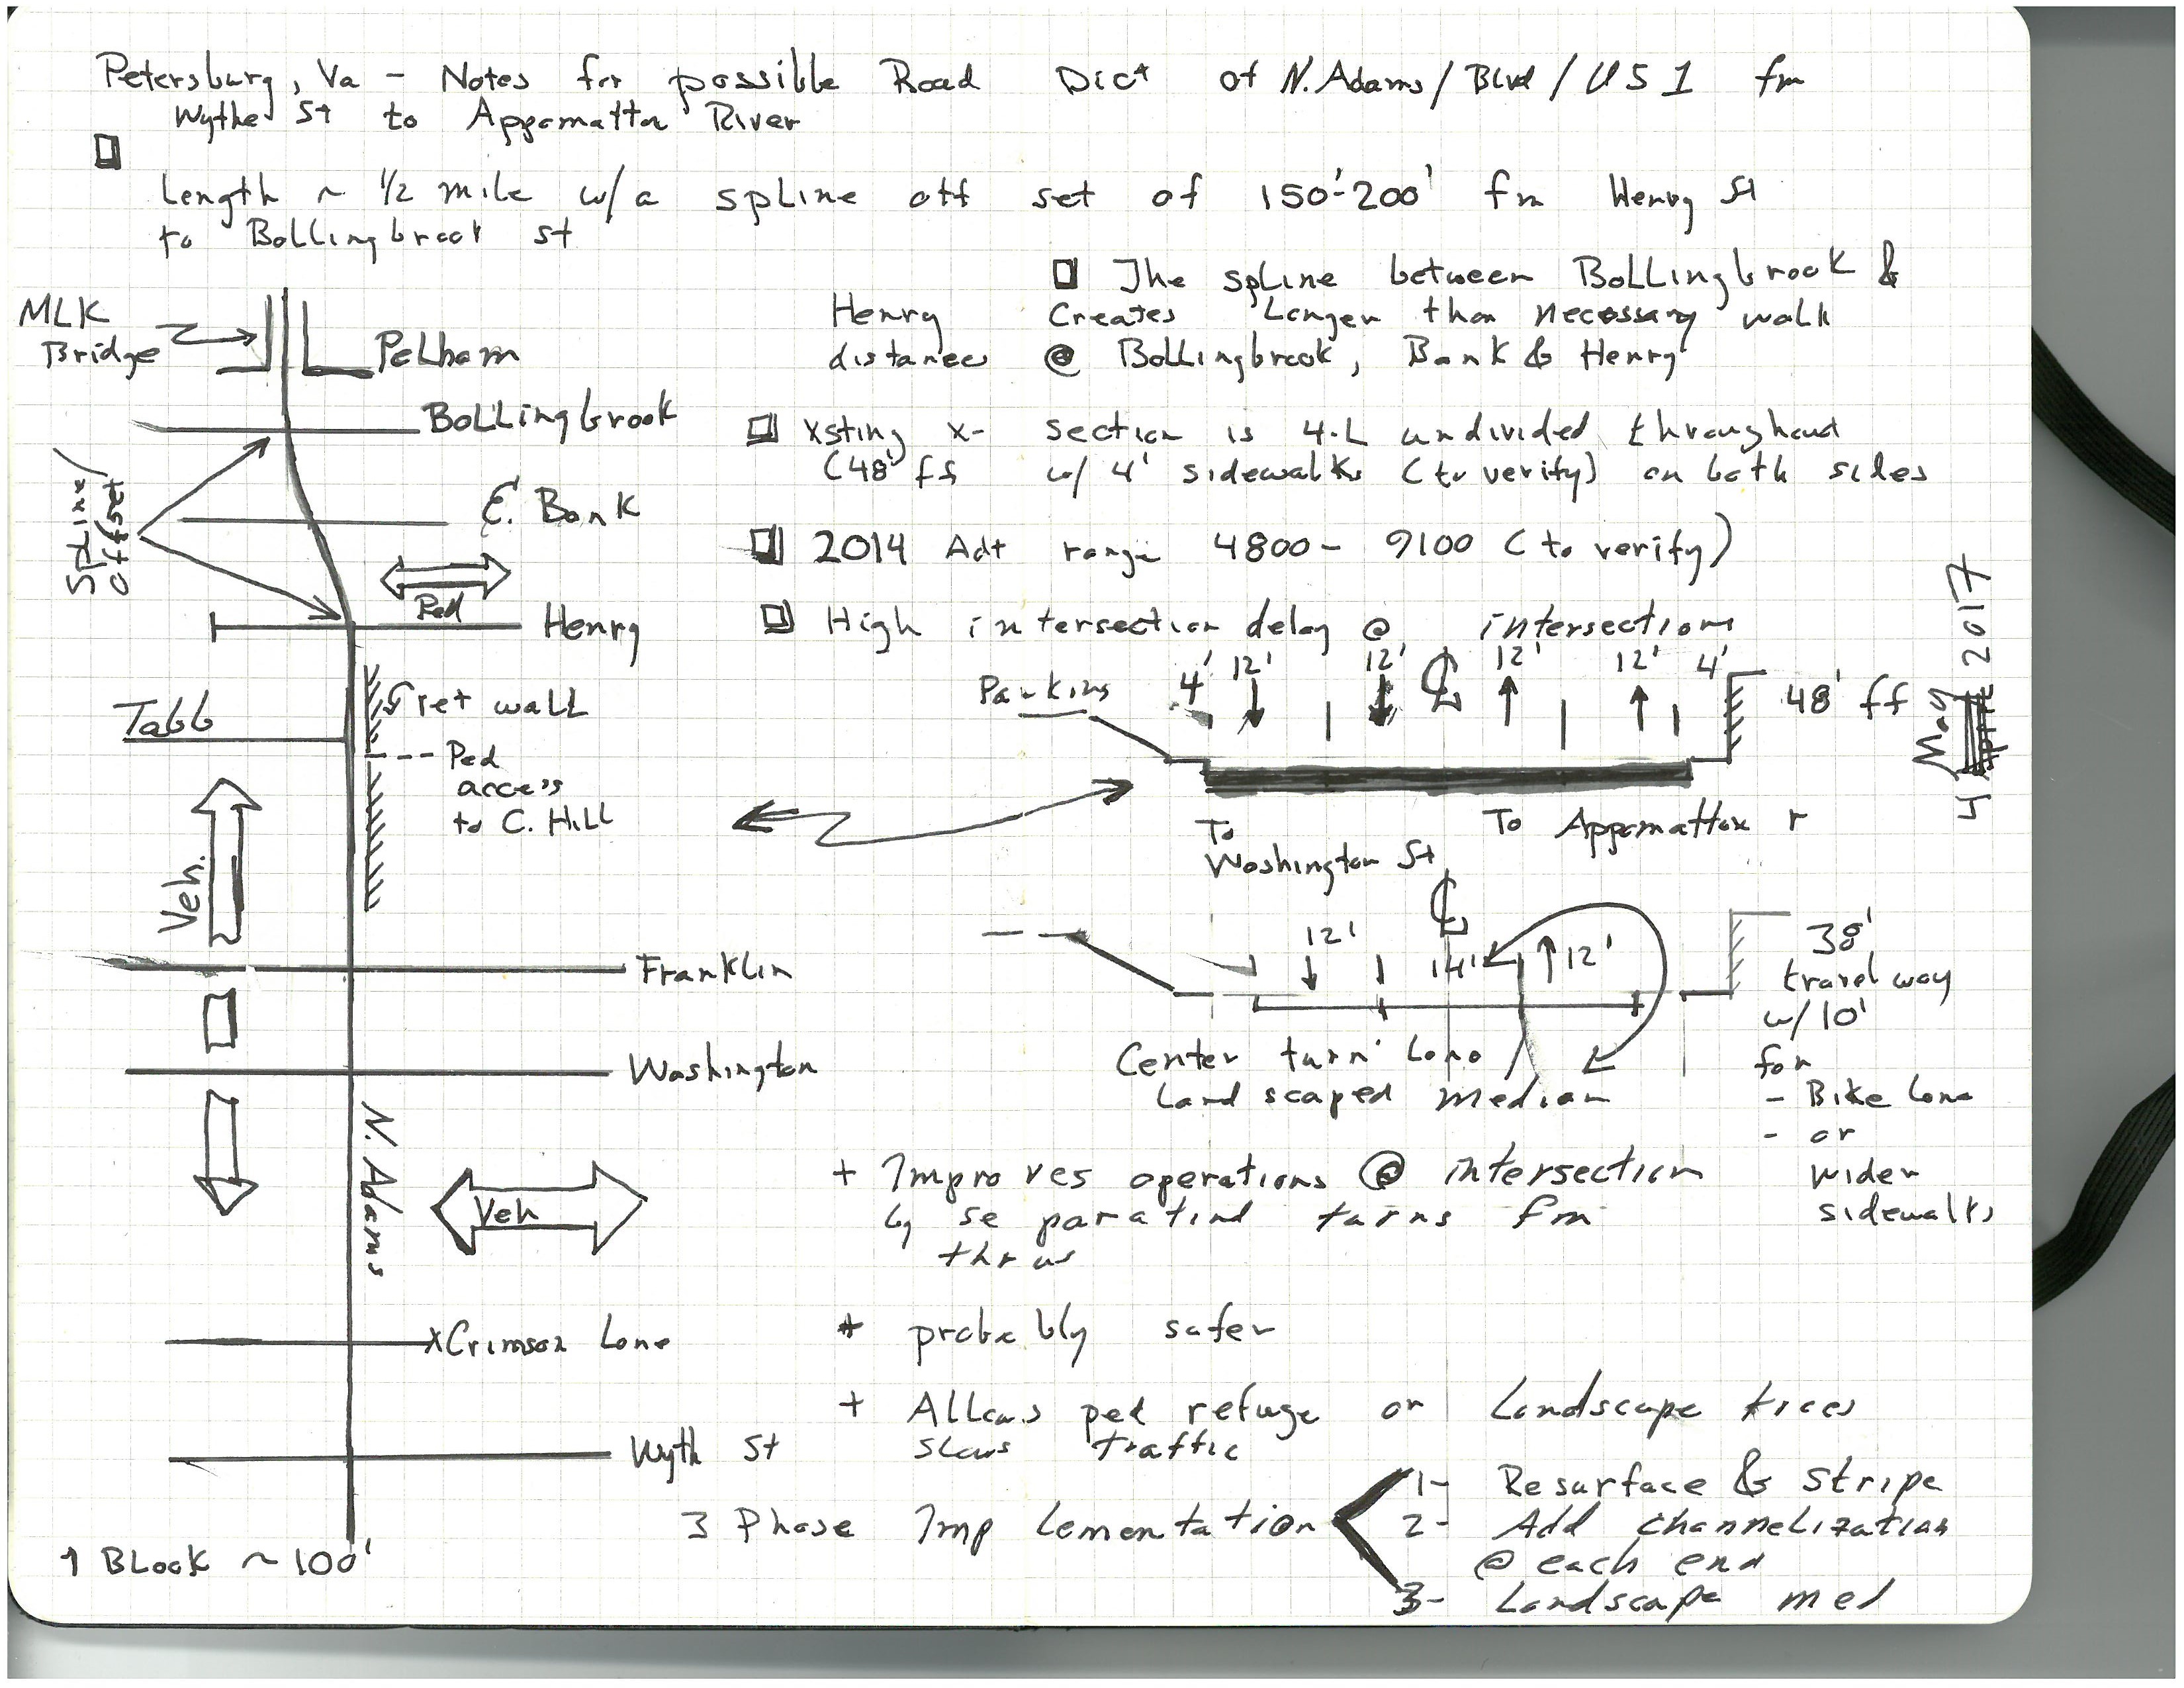 Petersburg, Va - Notes for possible Road Diet of N. Adams / Blvd / US 1 fm
Wythe St to Appomattox River
Length ~ 1/2 mile w/a spline off set of 150'-200' fm Henry St
to Bollingbrook st
The spline between Bollingbrook &
Henry Creates Longer than necessary walk
distances @ Bollingbrook, Bank & Henry
Xsting x-section is 4-L undivided throughout
(48' ff w/ 4' sidewalks (to verify) on both sides
2014 Adt range 4800 - 9100 (to verify)
High intersection delay @ intersections
MLK
Bridge
Pelham
Bollingbrook
Spline/
offset
E. Bank
Ped
Henry
ret wall
Tabb
Ped
access
to C. Hill
Veh.
Franklin
Washington
N. Adams
Veh
xCrimson Lane
Wyth St
1 Block ~ 100'
Parking 4' 12' 12' CL 12' 12' 4' 48' ff
To
Washington St
To Appomattox r
4 May 2017
12' CL 14' 12'
38'
travel way
w/ 10'
for
- Bike Lane
- or
wider
sidewalks
Center turn Lane /
Landscaped median
+ Improves operations @ intersection
by separatind turns fm
thrus
+ probably safer
+ Allows ped refuge or Landscape trees
slows traffic
3 Phase Implementation
1- Resurface & stripe
2- Add channelization
@ each end
3- Landscape med